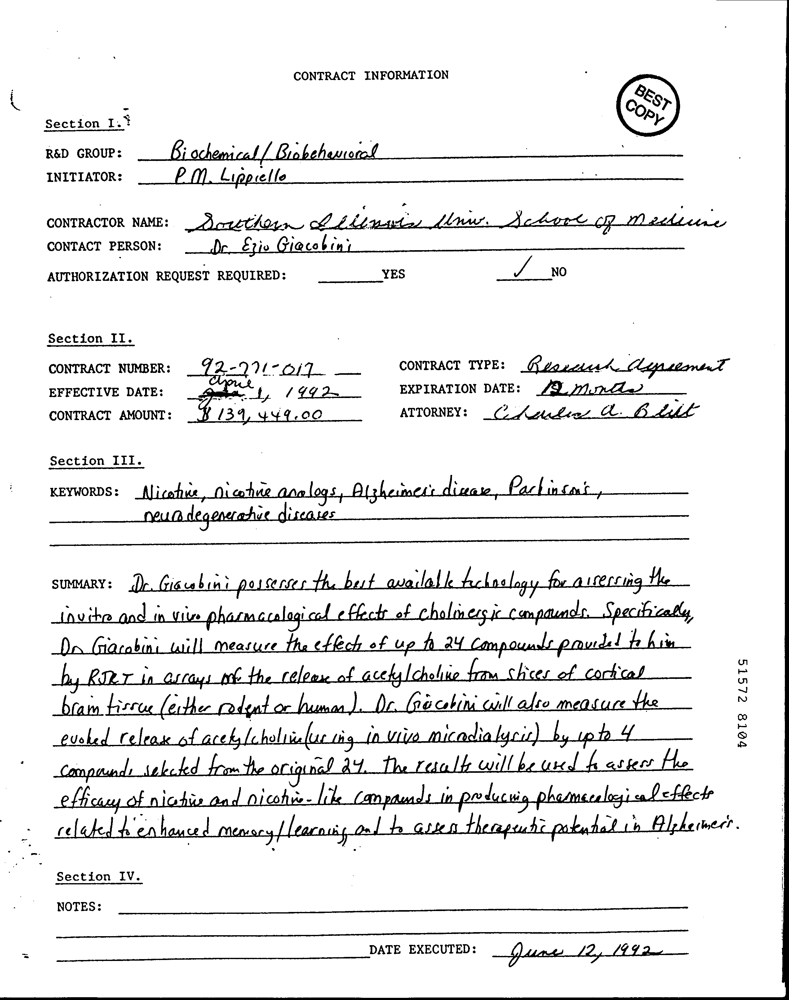 CONTRACT INFORMATION
BEST
COPY
Section I.
R&D GROUP: Biochemical/Biobehavioral
INITIATOR: P.M. Lippiello
CONTRACTOR NAME: Southern Illinois Univ. School of Medicine
CONTACT PERSON: Dr. Ezio Giacobini
AUTHORIZATION REQUEST REQUIRED: YES ✓ NO
Section II.
CONTRACT NUMBER: 92-271-017 CONTRACT TYPE: Research Agreement
EFFECTIVE DATE: April 1, 1992 EXPIRATION DATE: 12 months
CONTRACT AMOUNT: $139,449.00 ATTORNEY: Charles A. Blixt
Section III.
KEYWORDS: Nicotine, nicotine analogs, Alzheimer's disease, Parkinson's,
neurodegenerative diseases
SUMMARY: Dr. Giacobini possesses the best available technology for assessing the
in vitro and in vivo pharmacological effects of cholinergic compounds. Specifically,
Dr. Giacobini will measure the effects of up to 24 compounds provided to him
by RJRT in assays of the release of acetylcholine from slices of cortical
brain tissue (either rodent or human). Dr. Giacobini will also measure the
evoked release of acetylcholine (using in vivo microdialysis) by up to 4
compounds selected from the original 24. The results will be used to assess the
efficacy of nicotine and nicotine-like compounds in producing pharmacological effects
related to enhanced memory/learning and to assess therapeutic potential in Alzheimer's.
Section IV.
NOTES:
DATE EXECUTED: June 12, 1992
51572 8104